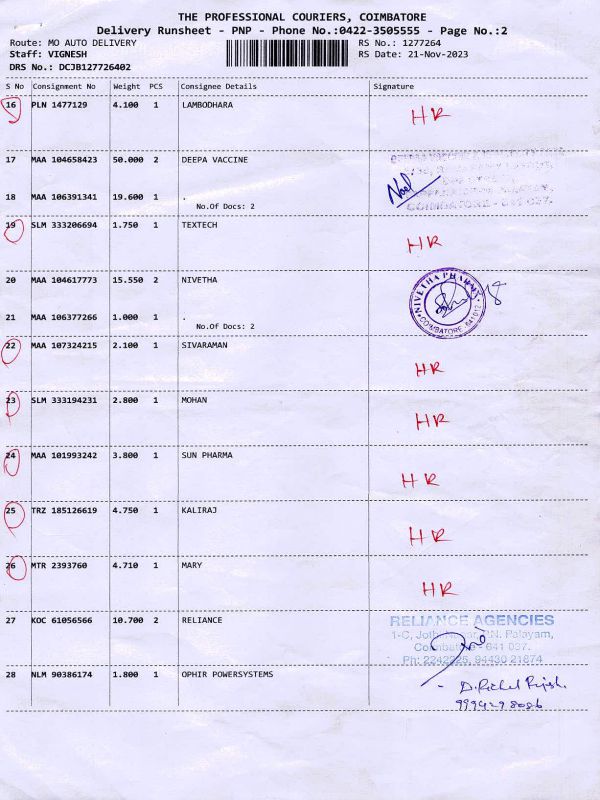 THE PROFESSIONAL COURIERS, COIMBATORE
Delivery Runsheet - PNP - Phone No.:0422-3505555 - Page No.:2
Route: MO AUTO DELIVERY RS No.: 1277264
Staff: VIGNESH RS Date: 21-Nov-2023
DRS No.: DCJB127726402
S No Consignment No Weight PCS Consignee Details Signature
16 PLN 1477129 4.100 1 LAMBODHARA HR
17 MAA 104658423 50.000 2 DEEPA VACCINE
Noel
COIMBATORE - 641 037.
18 MAA 106391341 19.600 1 .
No.Of Docs: 2
19 SLM 333206694 1.750 1 TEXTECH HR
20 MAA 104617773 15.550 2 NIVETHA
NIVETHA PHARMA
COIMBATORE 641012
21 MAA 106377266 1.000 1 .
No.Of Docs: 2
22 MAA 107324215 2.100 1 SIVARAMAN HR
23 SLM 333194231 2.800 1 MOHAN HR
24 MAA 101993242 3.800 1 SUN PHARMA HR
25 TRZ 185126619 4.750 1 KALIRAJ HR
26 MTR 2393760 4.710 1 MARY HR
27 KOC 61056566 10.700 2 RELIANCE RELIANCE AGENCIES
1-C, Palayam,
Coimbatore - 641 037.
Ph: 2242225, 94430 21874
28 NLM 90386174 1.800 1 OPHIR POWERSYSTEMS